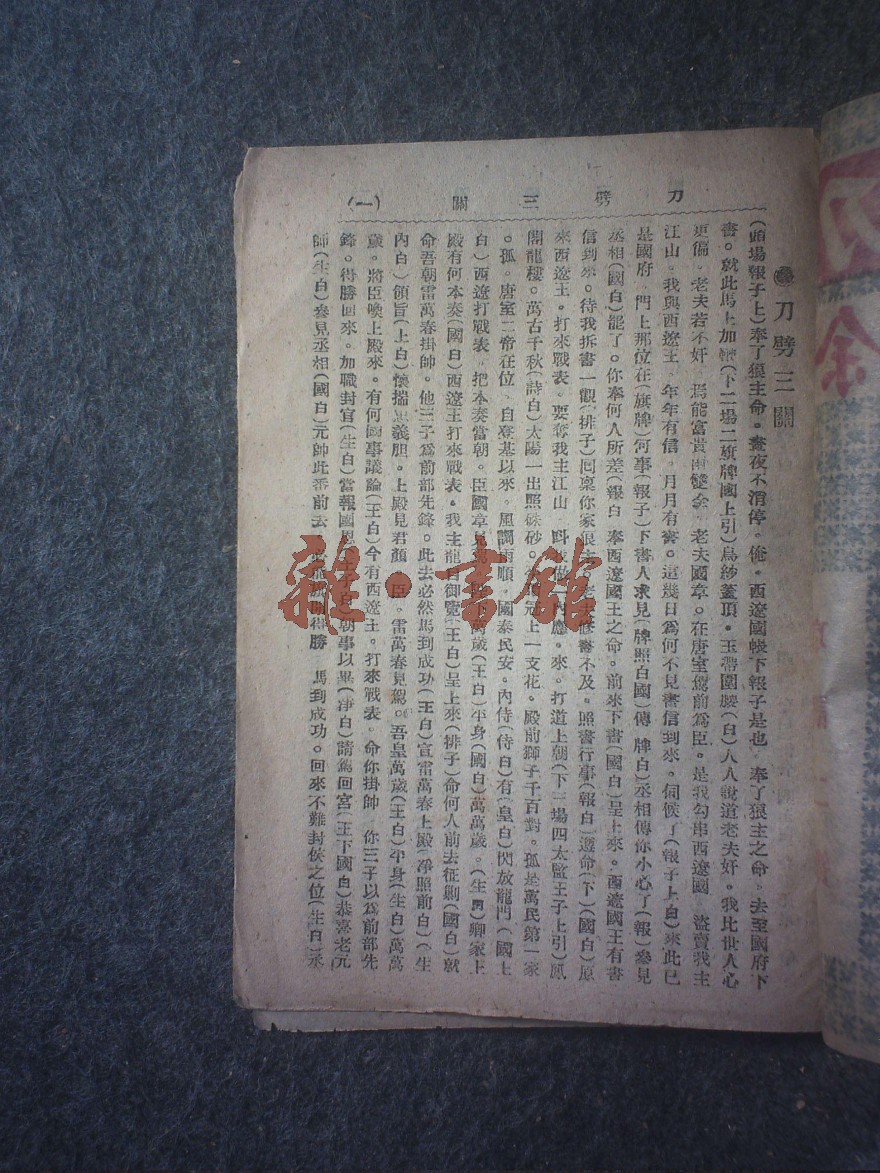 刀劈三關 (一)
刀劈三關
(頭場報子上)奉了狼主命。晝夜不消停。俺。西遼國帳下報子是也 奉了狼主之命。去至國府下
書。就此馬上加鞭(下二場二旗牌國上引)烏紗蓋頂。玉帶圍腰(白)人人說道老夫奸。我比世人心
更偏。老夫若不奸 焉能富貴兩雙全 老夫國章。在唐室駕前爲臣。是我勾串西遼國 盜賣我主
江山。我與西遼王 年年有信。月月有書。這幾日爲何不見書信到來。伺候了(報子上白)來此已
是國府 門上那位在(旗牌)何事(報子)下書人求見(牌照白國)傳 牌白)丞相傳你小心了(報)參見
丞相(國白)罷了。你奉何人所差(報白 奉西遼國王之命。前來下書(國白)呈上來。西遼國王有書
信到來。待我拆書一觀(排子)回稟你家狼主。老夫修書不及。照書行事(報白)遵命(下)(國白)原
來西遼王。打來戰表。要奪我主江山 內應。來。打道上朝(下三場四太監王子上引)鳳
閣龍樓。萬古千秋(詩白)太陽一出照硃砂。元上一支花。殿前獅子千百對。孤是萬民第一家
。孤。唐室二帝在位。自登基以來。風調雨順。國泰民安。內侍(侍白)有(皇白)閃放龍門(國上
白)西遼打戰表。把本奏當朝。臣國章見駕 萬歲(王白)平身(國白)萬萬歲。(生 )卿家上
殿有何本奏(國白)西遼王打來戰表。我主龍目御覽(王白)呈上來(排子)命何人前去征剿(國白)就
命吾朝雷萬春掛帥。他三子爲前部先鋒。此去必然馬到成功(王白)宣雷萬春上殿(淨照前白)(生
內白)領旨(上白)懷揣 義胆。上殿見君顏 臣。雷萬春見駕。吾皇萬歲(王白)平身(生白)萬萬
歲。將臣喚上殿來。有何國事議論(王白)今有西遼主。打來戰表。命你掛帥 你三子以爲前部先
鋒。得勝回來。加職封官(生白)當報國恩 白)朝事以畢(淨白)請駕回宮(王下國白)恭喜老元
師(生白)參見丞相(國白)元帥此番前去 得勝 馬到成功。回來不難封侯之位(生白)丞
雜·書館